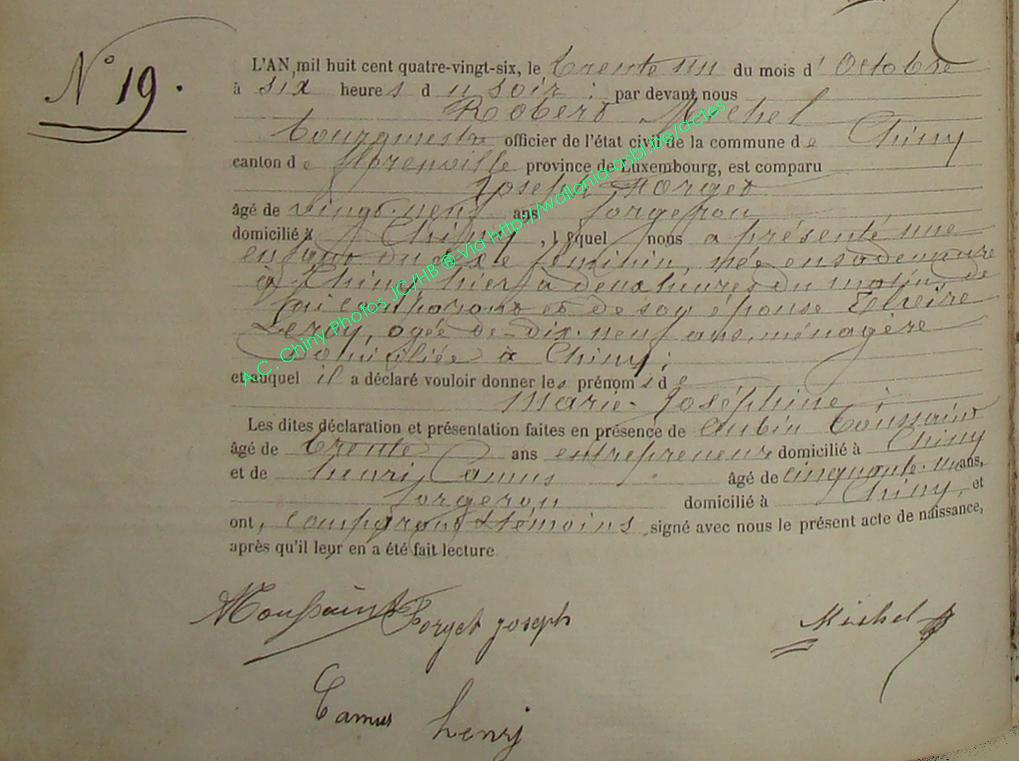 N° 19.
L'AN mil huit cent quatre-vingt-six, le trente un du mois d' Octobre
à six heures du soir ; par devant nous
Robert Michel
bourgmestre officier de l'état civil de la commune de Chiny
canton de florenville province de Luxembourg, est comparu
Joseph Forget
âgé de vingt-neuf ans forgeron
domicilié à Chiny, lequel nous a présenté une
enfant du sexe féminin, née en sa demeure
à Chiny, hier à deux heures du matin, de
lui comparant et de son épouse
Leroy, agée de dix-neuf ans, ménagère
Domiciliée à Chiny ;
et auquel il a déclaré vouloir donner les prénoms de
Marie-Joséphine ;
Les dites déclaration et présentation faites en présence de Aubin Toussaint
âgé de trente ans entrepreneur domicilié à Chiny
et de henri Camus âgé de cinquante-un ans,
forgeron domicilié à Chiny, et
ont, comparant & témoins, signé avec nous le présent acte de naissance,
après qu'il leur en a été fait lecture
Forget joseph
Michel
Camus henri
A.C. Chiny Photos JC/HB ® Via http://wallonia-asbl.be/actes